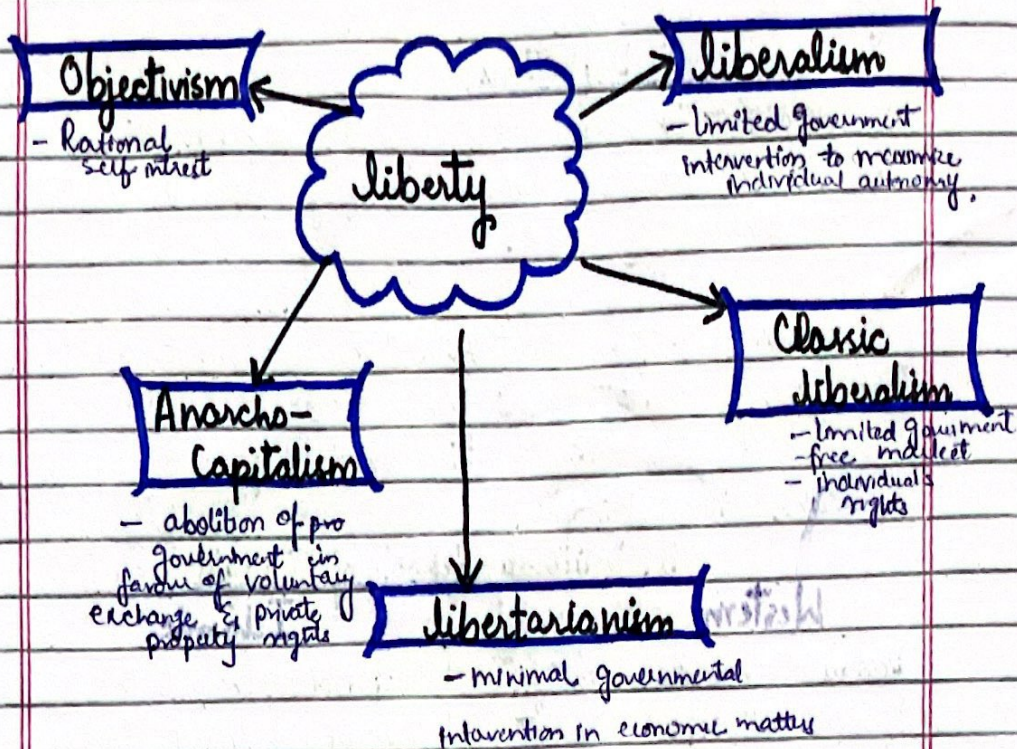 liberty
Objectivism
- Rational
self intrest
liberalism
- limited government
intervention to maximize
individual autonomy.
Classic
liberalism
- limited government
- free market
- individual's
rights
Anarcho-
Capitalism
- abolition of pro
government in
favour of voluntary
exchange & private
property rights
libertarianism
- minimal governmental
intervention in economic matters